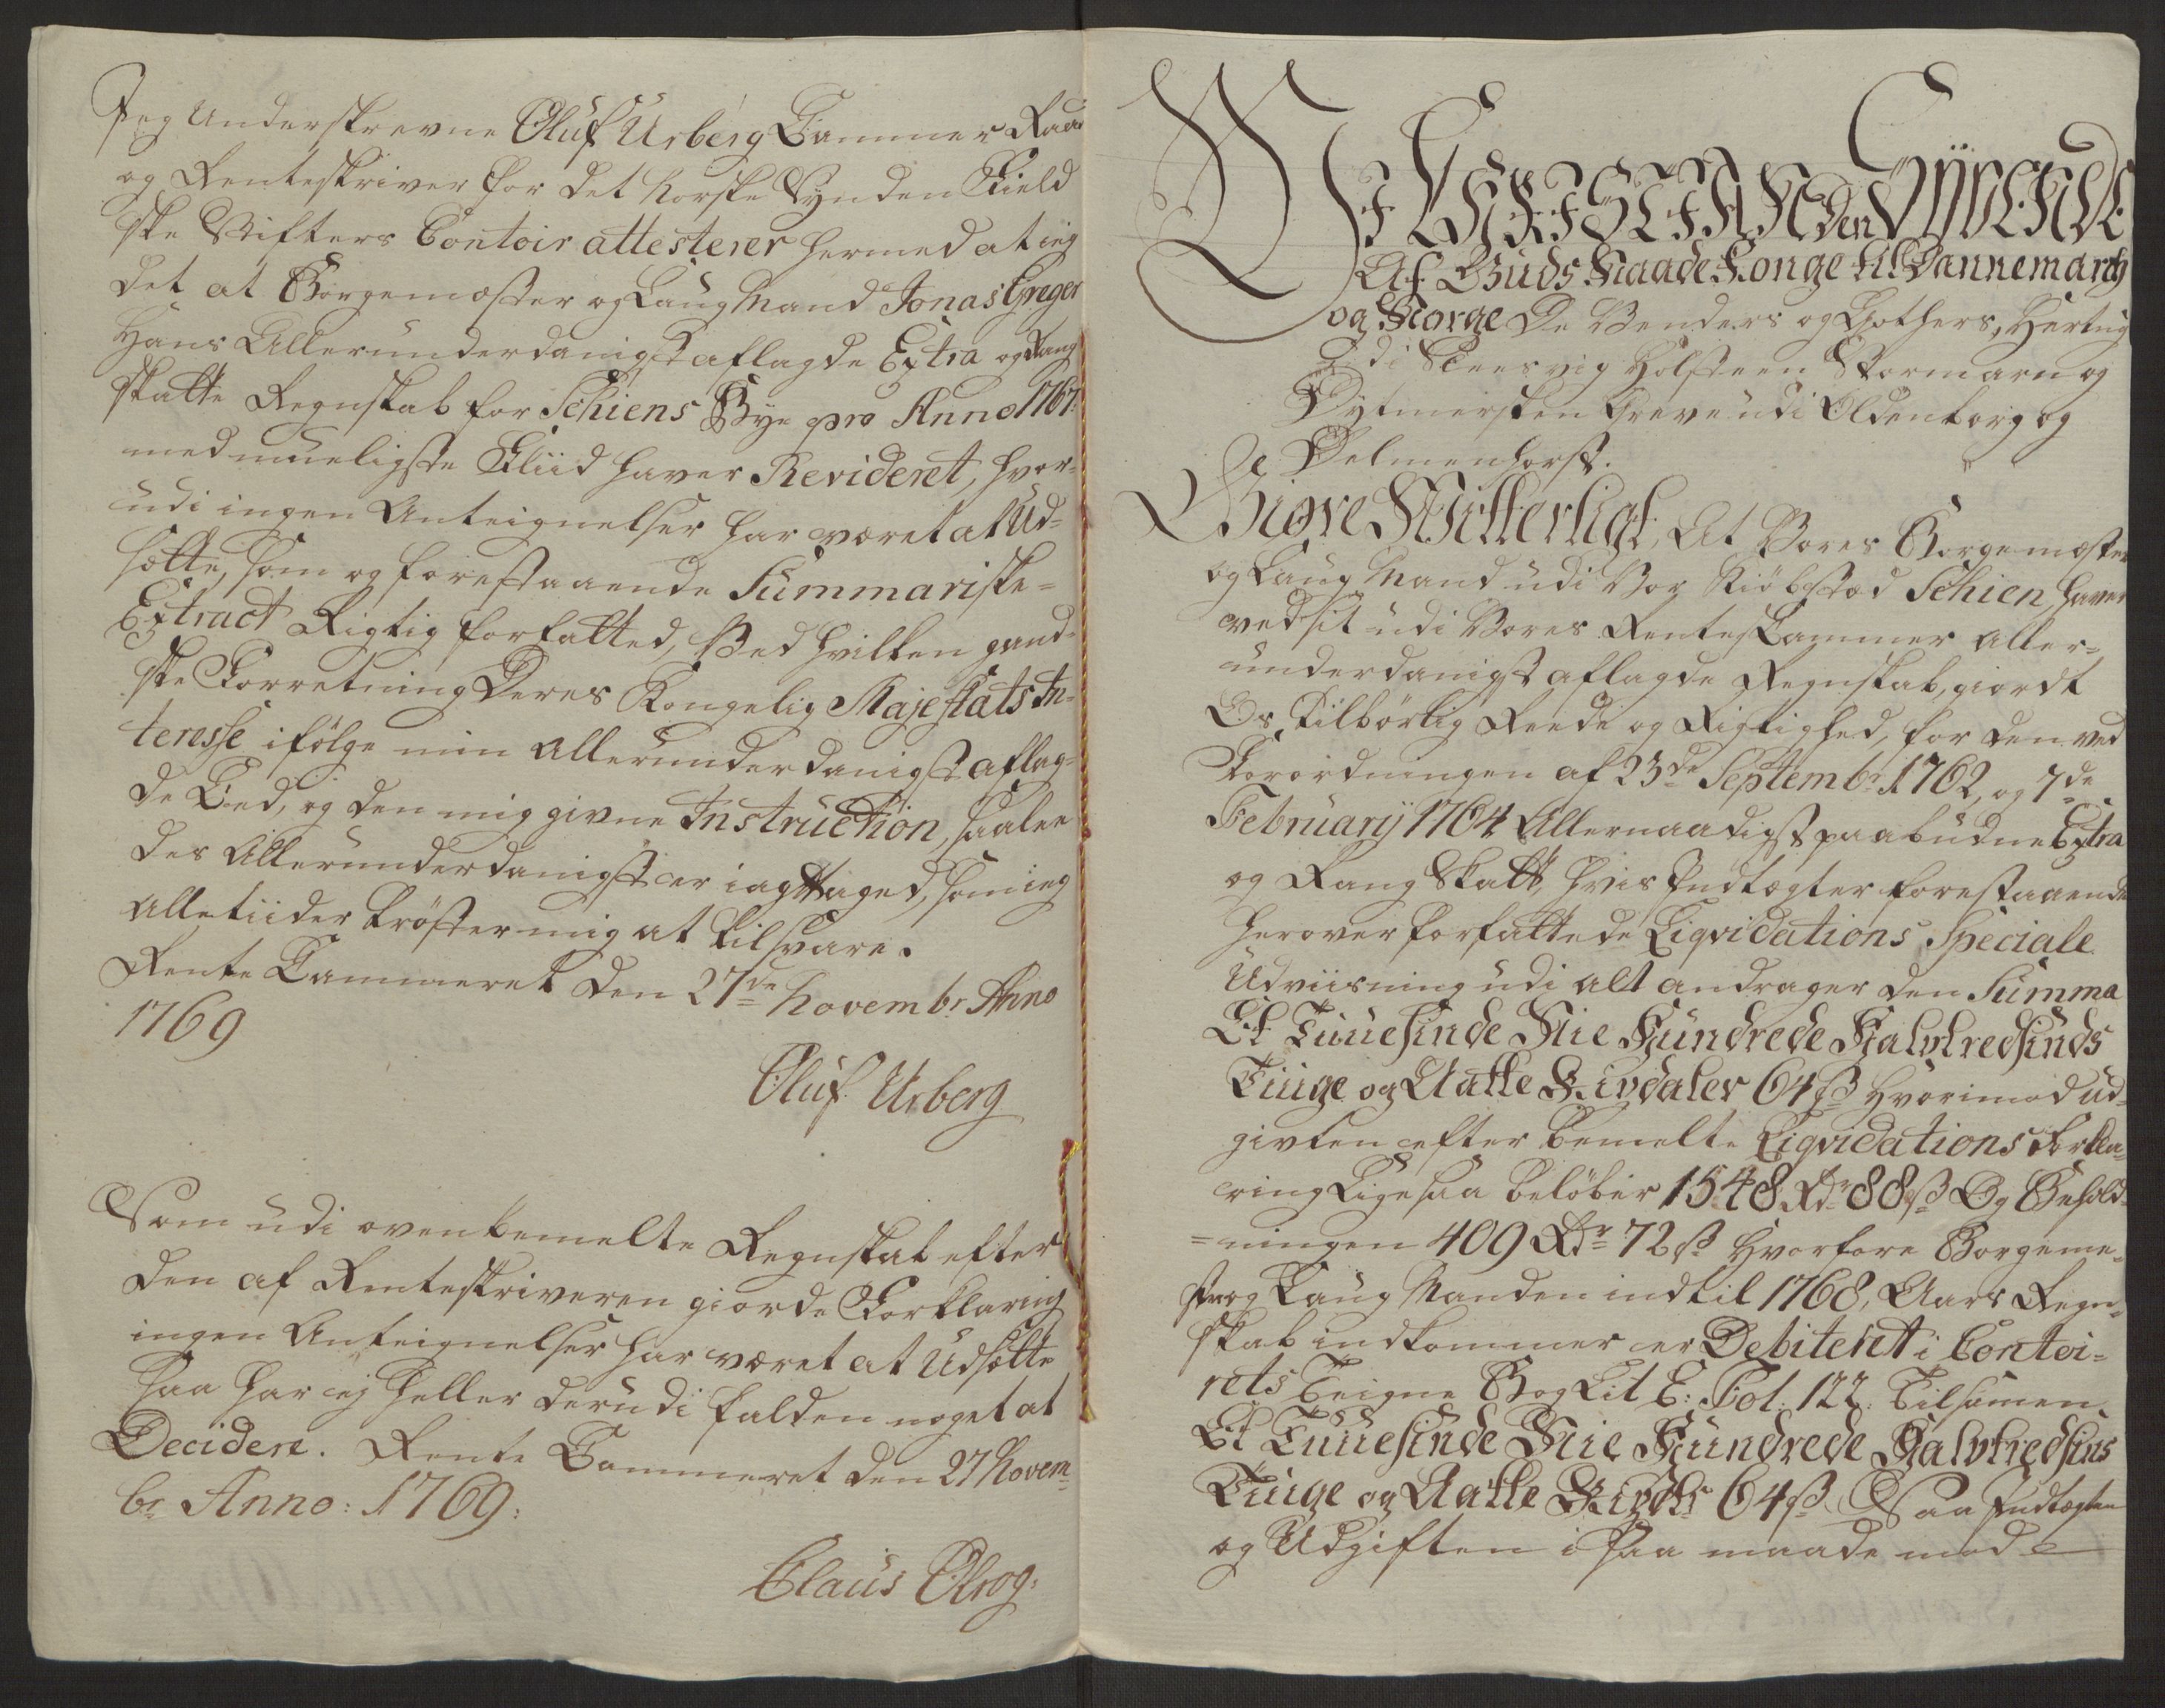 Jeg Underskrevne Oluf Urberg Cammer Raad
og Renteskriver for det Norske Synden Field
ske Stifters Contoir attesterer hermed at ieg
det at Borgemæster og Laug Mand Jonas Greger
Hans Allerunderdanigst aflagde Extra og Rang
skatte Regnskab for Schiens Bye pro Anno 1767.
med mueligste Fliid haver Revideret, hvor=
udi ingen Anteignelser har været at Ud=
sætte, som og forestaaende Summariske=
Extract Rigtig forfatted, Ved hvilken gand=
ske Forretning Deres Kongelig Majestäts In=
teresse ifölge min Allerunderdanigst aflag=
de Eed, og den mig givne Instruction, saalee
des Allerunderdanigst er iagttaged, som ieg
Alletiider tröster mig at tilsvare.
Rente Cammeret den 27de Novembr Anno
1769
Oluf Urberg
Som udi ovenbemelte Regnskab efter
den af Renteskriveren giorde Forklaring
ingen Anteignelser har været at Udsætte
saa har ej heller derudi falden noget at
Decidere. Rente Cammeret den 27 Novem=
br Anno: 1769:
Claus Olrog:
Wi CHRISTIAN den SYVENDE
Af Guds Naade Konge til Dannemarch
og Norge De Venders og Gothers, Hertug
udi Sleesvig Holsteen Stormarn og
Dytmersken Greve udi Oldenborg og
Delmenhorst.
Giøre Witterligt, At Vores Borgemæster
og Laug Mand udi Vor Kiöbstæd Schien haver
ved sit udi Vores Rente Cammer Aller=
underdanigst aflagde Regnskab, giordt
Os tilbörlig Reede og Rigtighed, for den ved
Forordningen af 23de Septembr 1762, og 7de
February 1764 Allernaadigst paabudne Extra
og Rang Skatt, hvis Indtægter forestaaende
herover forfattede Liqvidations Speciale
Udviisning udi alt andrager den Summa
Et Tuuesinde Nie Hundrede Halvtredsinds
Tiuge og Aatte Rixdaler 64 ß Hvorimod Ud=
givten efter bemelte Liqvidations Forkla=
ring Ligesaa belöber 1548 Rdr 88 ß Og Behold=
=ningen 409 Rdr 72 ß Hvorfore Borgeme=
ster og Laug Manden indtil 1768, Aars Regn=
skab indkommer er Debitert i Contoi=
rets Teigne Bog Lit E: Fol: 122: Tilsamen
Et Tuuesinde Nie Hundrede Halvtredsins
Tiuge og Aatte Rixdlr 64 ß Saa Indtægten
og Udgiften i saa maade mod